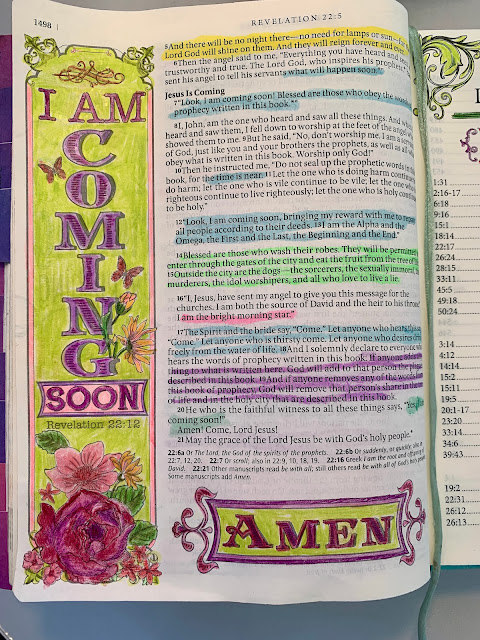 1498
REVELATION 22:5
I AM
COMING
SOON
Revelation 22:12
5And there will be no night there—no need for lamps or sun—for the
Lord God will shine on them. And they will reign forever and
6Then the angel said to me, "Everything you have heard and
trustworthy and true. The Lord God, who inspires his prophets,
sent his angel to tell his servants what will happen soon."
Jesus Is Coming
7"Look, I am coming soon! Blessed are those who obey the words
prophecy written in this book."
8I, John, am the one who heard and saw all these things. And when
heard and saw them, I fell down to worship at the feet of the angel
showed them to me. 9But he said, "No, don't worship me. I am a servant
of God, just like you and your brothers the prophets, as well as all who
obey what is written in this book. Worship only God!"
10Then he instructed me, "Do not seal up the prophetic words in this
book, for the time is near. 11Let the one who is doing harm continue
do harm; let the one who is vile continue to be vile; let the one who is
righteous continue to live righteously; let the one who is holy continue
to be holy."
12"Look, I am coming soon, bringing my reward with me to repay
all people according to their deeds. 13I am the Alpha and the
Omega, the First and the Last, the Beginning and the End."
14Blessed are those who wash their robes. They will be permitted
enter through the gates of the city and eat the fruit from the tree of
15Outside the city are the dogs—the sorcerers, the sexually immoral,
murderers, the idol worshipers, and all who love to live a lie.
16"I, Jesus, have sent my angel to give you this message for the
churches. I am both the source of David and the heir to his throne.
I am the bright morning star."
17The Spirit and the bride say, "Come." Let anyone who hears this say,
"Come." Let anyone who is thirsty come. Let anyone who desires drink
freely from the water of life. 18And I solemnly declare to everyone who
hears the words of prophecy written in this book: If anyone adds
thing to what is written here, God will add to that person the plagues
described in this book. 19And if anyone removes any of the words
this book of prophecy, God will remove that person's share in the tree
of life and in the holy city that are described in this book.
20He who is the faithful witness to all these things says, "Yes,
coming soon!"
Amen! Come, Lord Jesus!
21May the grace of the Lord Jesus be with God's holy people.
22:6a Or The Lord, the God of the spirits of the prophets. 22:6b Or suddenly, or quickly; also in
22:7, 12, 20. 22:7 Or scroll; also in 22:9, 10, 18, 19. 22:16 Greek I am the root and offspring of
David. 22:21 Other manuscripts read be with all; still others read be with all of God's holy people.
Some manuscripts add Amen.
AMEN
1:31
2:16-17
6:18
9:16
15:1
18:14
22:17
26:24
28:15
33:11
45:5
49:18
50:24
3:14
4:12
14:14
15:2
15:11
19:5
20:1-17
23:20
33:14
34:6
39:43
19:2
22:31
26:12
26:13